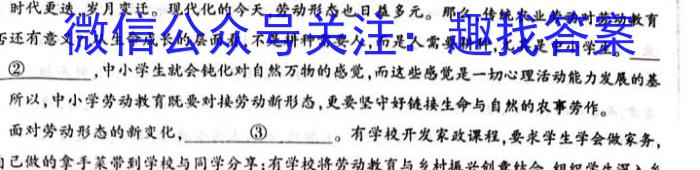 时代更迭，岁月变迁。现代化的今天，劳动形态也日益多元。那么，传统农业劳动对劳动教育
否还有意义
微信公众号关注：趣找答案
②，中小学生就会钝化对自然万物的感觉，而这些感觉是一切心理活动能力发展的基
所以，中小学劳动教育既要对接劳动新形态，更要坚守好链接生命与自然的农事劳作。
面对劳动形态的新变化，③。有学校开发家政课程，要求学生学会做家务，
自己做的拿手菜带到学校与同学分享；有学校将劳动教育与乡村振兴创意结合，组织学生深入乡